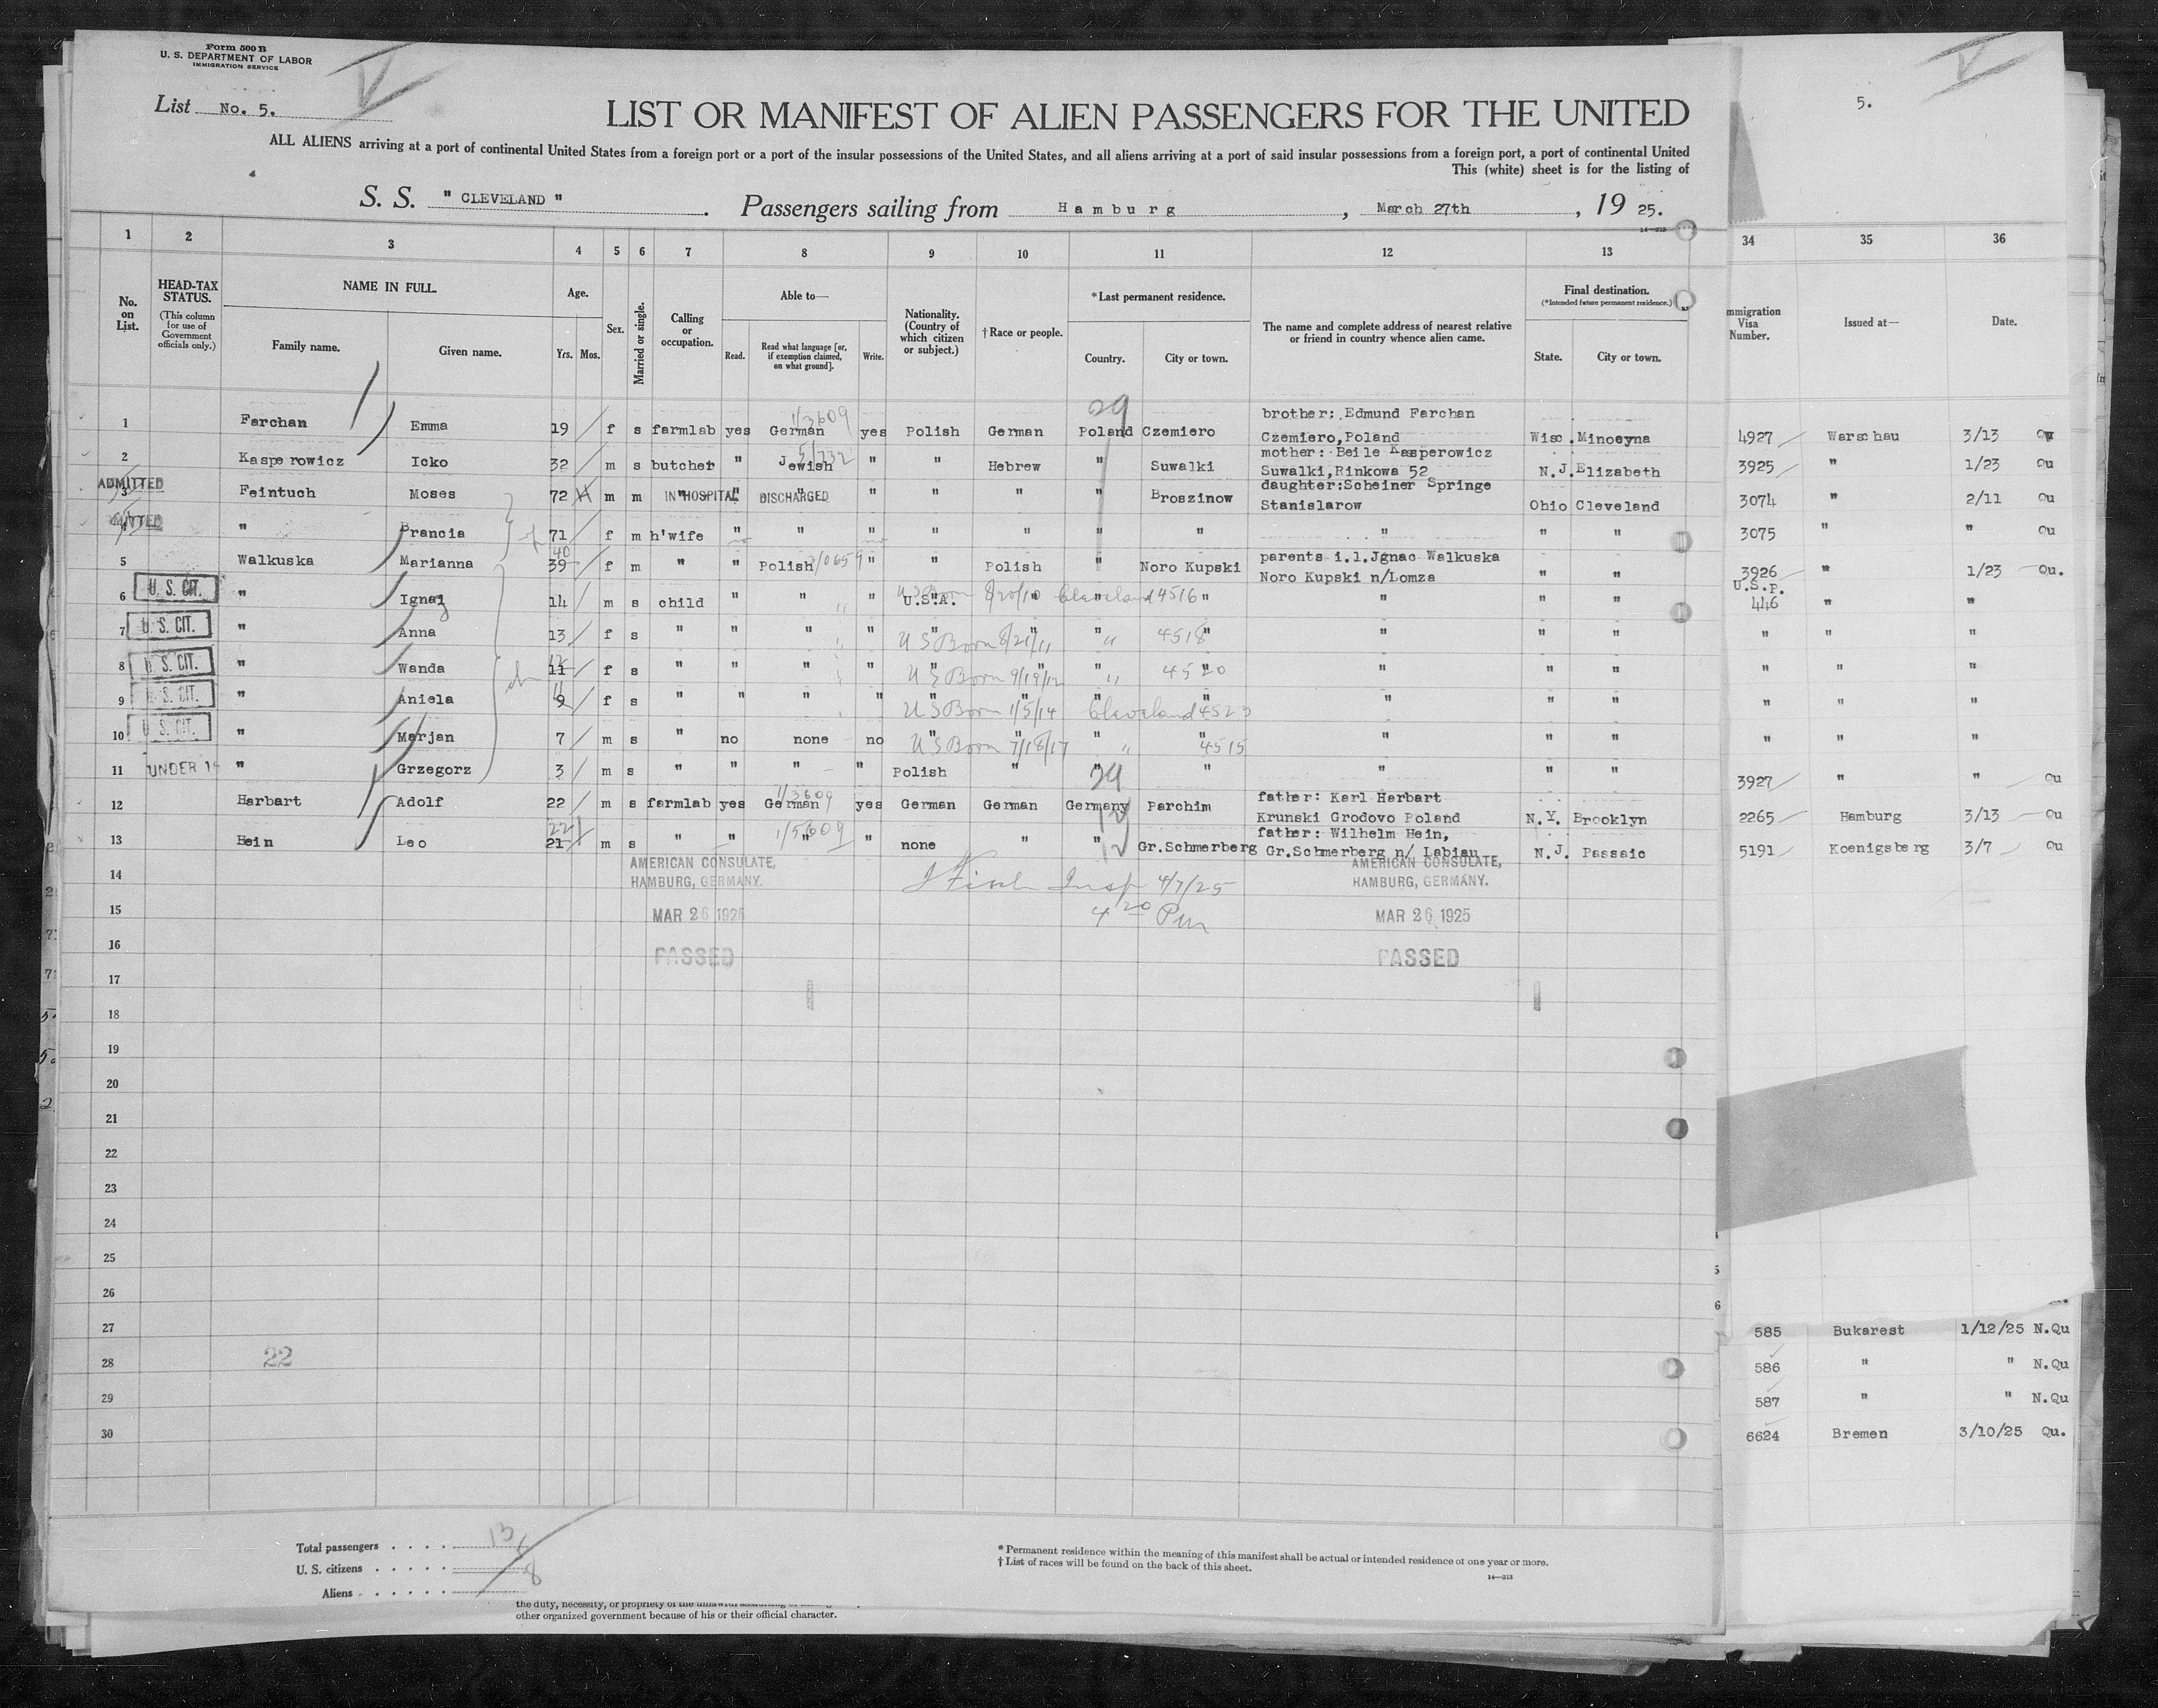 Form 500 B
U. S. DEPARTMENT OF LABOR
IMMIGRATION SERVICE
V
V
List No. 5.
5.
LIST OR MANIFEST OF ALIEN PASSENGERS FOR THE UNITED
ALL ALIENS arriving at a port of continental United States from a foreign port or a port of the insular possessions of the United States, and all aliens arriving at a port of said insular possessions from a foreign port, a port of continental United
This (white) sheet is for the listing of
S. S. " CLEVELAND " . Passengers sailing from Hamburg , March 27th , 19 25.
14—213
1 2 3 4 5 6 7 8 9 10 11 12 13 34 35 36
No. on List.
HEAD-TAX STATUS.
(This column for use of Government officials only.)
NAME IN FULL.
Family name. Given name.
Age.
Yrs. Mos.
Sex.
Married or single.
Calling or occupation.
Able to—
Read. Read what language [or, if exemption claimed, on what ground]. Write.
Nationality. (Country of which citizen or subject.)
† Race or people.
* Last permanent residence.
Country. City or town.
The name and complete address of nearest relative or friend in country whence alien came.
Final destination.
(* Intended future permanent residence.)
State. City or town.
mmigration Visa Number.
Issued at—
Date.
29
1/3609
brother: Edmund Farchan
1 Farchan Emma 19 f s farmlab yes German yes Polish German Poland Czemiero Czemiero, Poland Wisc. Minoeyna 4927 Warschau 3/13 Qu
5/732
mother: Beile Kasperowicz
2 Kasperowicz Icko 32 m s butcher " Jewish " " Hebrew " Suwalki Suwalki, Rinkowa 52 N.J. Elizabeth 3925 " 1/23 Qu
daughter: Scheiner Springe
ADMITTED 3 Feintuch Moses 72 m m IN HOSPITAL " DISCHARGED " " " " Broszinow Stanislarow Ohio Cleveland 3074 " 2/11 Qu
4 " Brancia 71 f m h'wife " " " " " " " " " " 3075 " " Qu
no no
40
parents i.l. Jgnac Walkuska
5 Walkuska Marianna 39 f m " " Polish " " Polish " Noro Kupski Noro Kupski n/Lomza " " 3926 " 1/23 Qu.
U.S.P.
6 U. S. CIT. " Ignaz 14 m s child " " " U.S.A. " " " " " " 446 " "
US Born 8/20/10 Cleveland 4516
7 U. S. CIT. " Anna 13 f s " " " " " " " " " " " " " "
US Born 8/21/11 " 4518
12
8 U. S. CIT. " Wanda 11 f s " " " " " " " " " " " " " "
US Born 9/19/12 " 4520
11
9 U. S. CIT. " Aniela 9 f s " " " " " " " " " " " " " "
US Born 1/5/14 Cleveland 4523
10 U. S. CIT. " Marjan 7 m s " no none no " " " " " " " " " "
US Born 7/18/17 " 4515
11 UNDER 14 " Grzegorz 3 m s " " " " Polish " " " " " " 3927 " " Qu
29
1/3609
father: Karl Harbart
12 Harbart Adolf 22 m s farmlab yes German yes German German Germany Parchim Krunski Grodovo Poland N.Y. Brooklyn 2265 Hamburg 3/13 Qu
22
1/5609
father: Wilhelm Hein,
13 Hein Leo 21 m s " " " " none " " Gr.Schmerberg Gr.Schmerberg n/ Labiau N.J. Passaic 5191 Koenigsberg 3/7 Qu
12
AMERICAN CONSULATE, AMERICAN CONSULATE,
14 HAMBURG, GERMANY. Insp 4/7/25 HAMBURG, GERMANY.
15 MAR 26 1925 4 20 Pm MAR 26 1925
16 PASSED PASSED
17
18
19
20
21
22
23
24
25
26
27 585 Bukarest 1/12/25 N.Qu
28 22 586 " " N.Qu
29 587 " " N.Qu
30 6624 Bremen 3/10/25 Qu.
Total passengers 13
U. S. citizens
Aliens 8
* Permanent residence within the meaning of this manifest shall be actual or intended residence of one year or more.
† List of races will be found on the back of this sheet.
14—213
other organized government because of his or their official character.